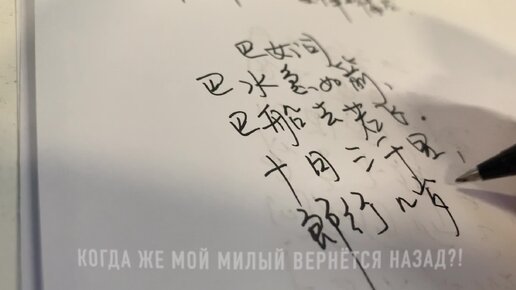 巴女词
巴水急如箭,
巴船去若飞.
十月三千里,
郎行几岁
КОГДА ЖЕ МОЙ МИЛЫЙ ВЕРНЁТСЯ НАЗАД?!